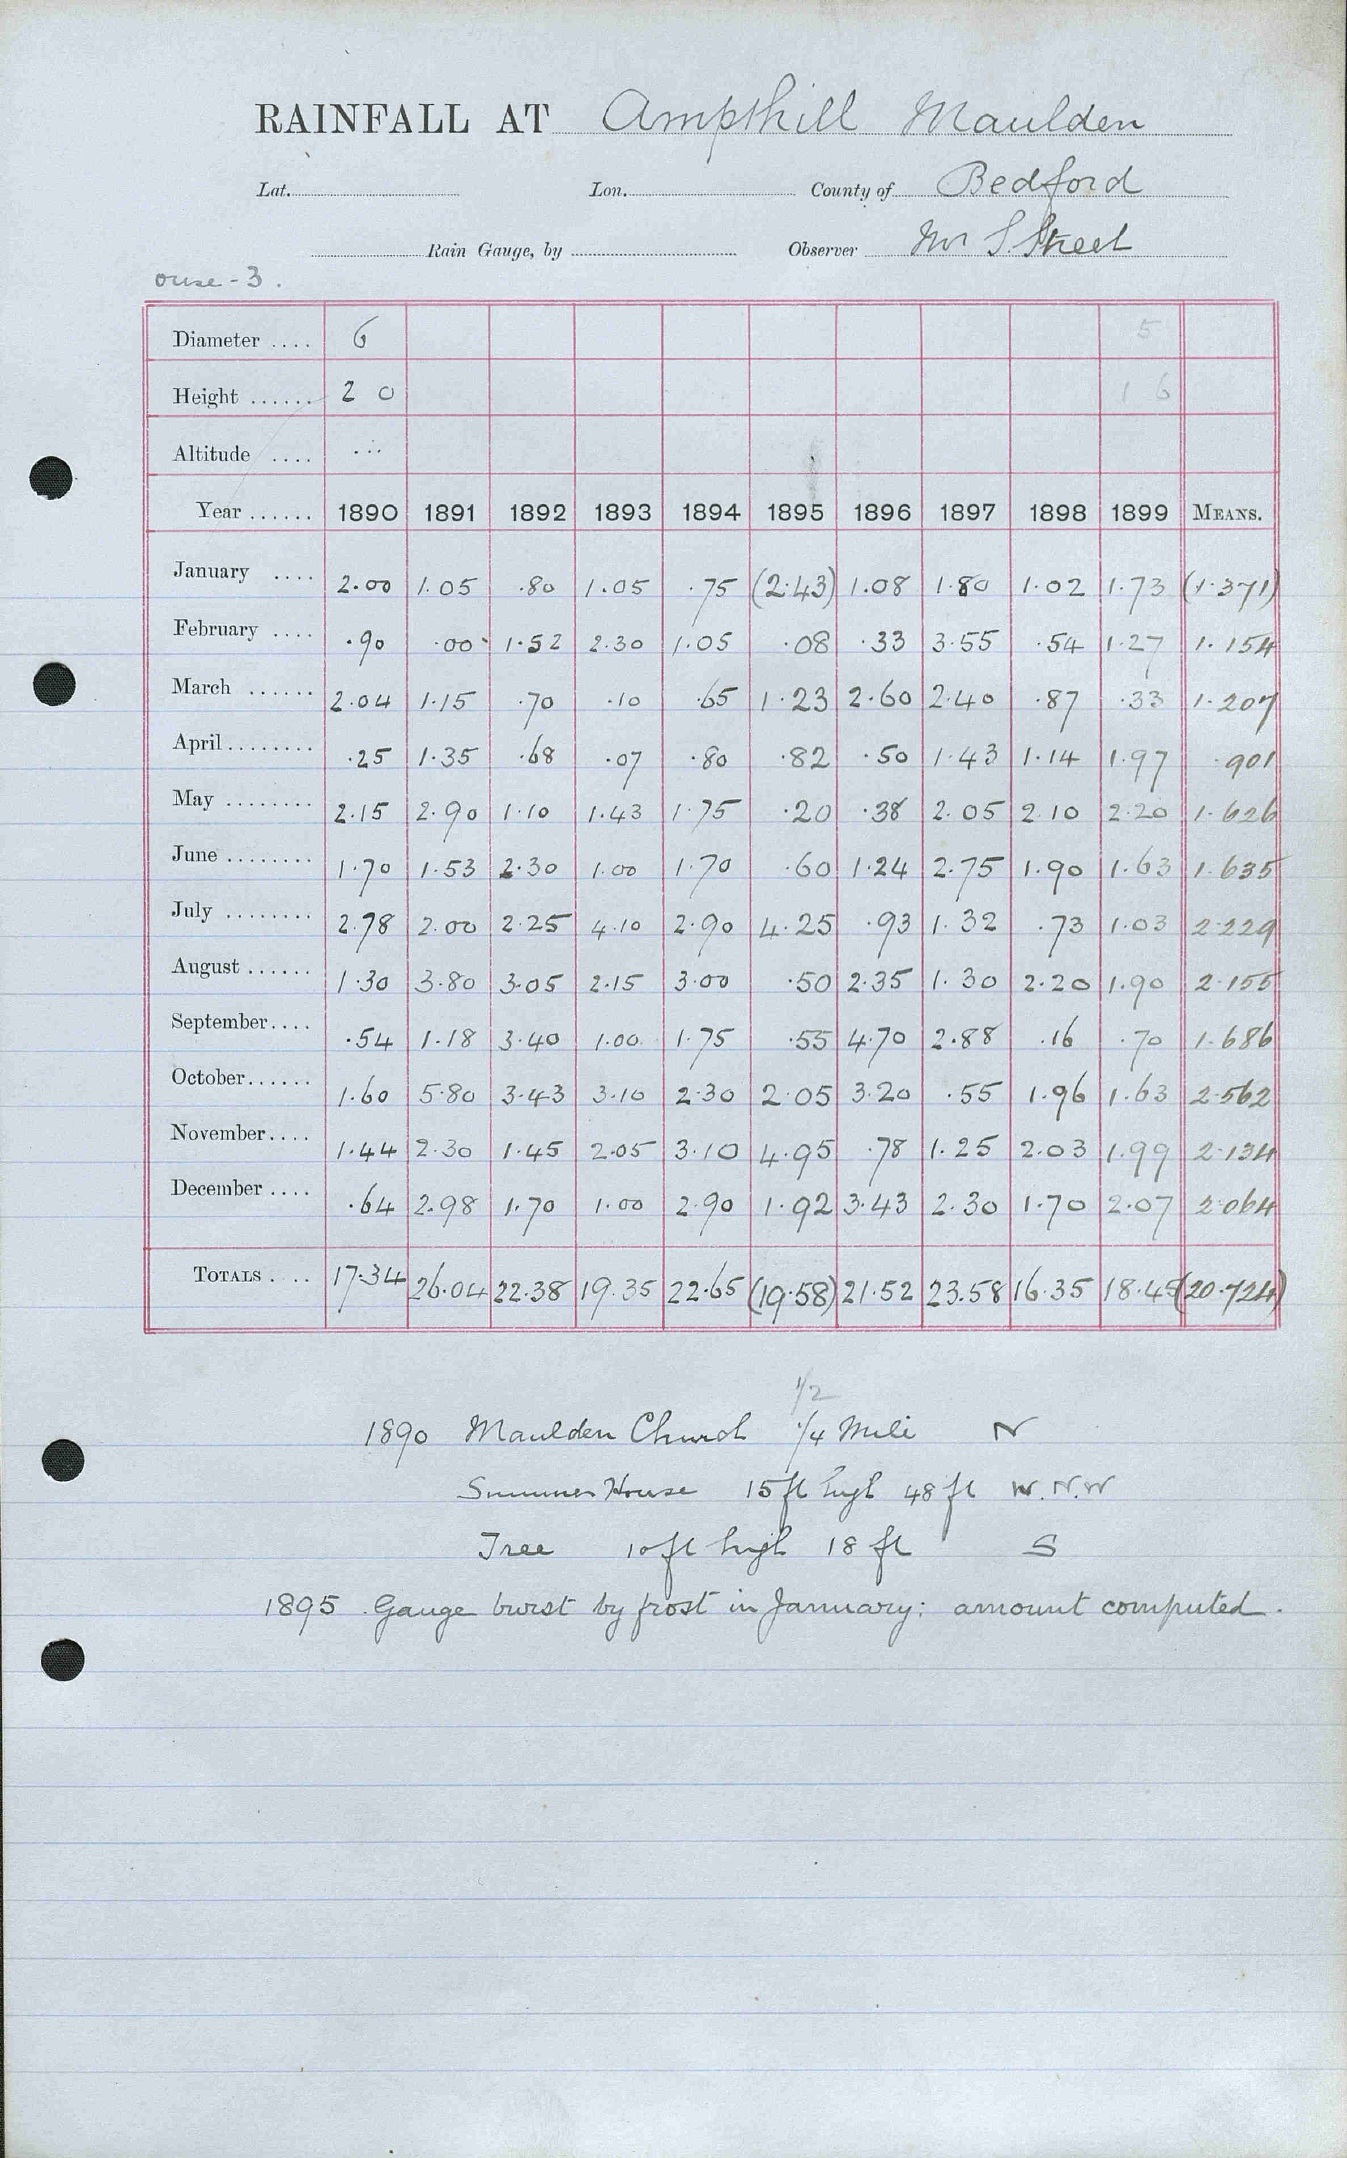 RAINFALL AT Ampthill Maulden
Lat. Lon. County of Bedford
Rain Gauge, by Observer Mr S Street
Ouse - 3.
Diameter .... 6 5
Height ...... 2 0 1 6
Altitude .... ...
Year ...... 1890 1891 1892 1893 1894 1895 1896 1897 1898 1899 MEANS.
January .... 2.00 1.05 .80 1.05 .75 (2.43) 1.08 1.80 1.02 1.73 (1.371)
February .... .90 .00 1.52 2.30 1.05 .08 .33 3.55 .54 1.27 1.154
March ...... 2.04 1.15 .70 .10 .65 1.23 2.60 2.40 .87 .33 1.207
April ........ .25 1.35 .68 .07 .80 .82 .50 1.43 1.14 1.97 .901
May ........ 2.15 2.90 1.10 1.43 1.75 .20 .38 2.05 2.10 2.20 1.626
June ........ 1.70 1.53 2.30 1.00 1.70 .60 1.24 2.75 1.90 1.63 1.635
July ........ 2.78 2.00 2.25 4.10 2.90 4.25 .93 1.32 .73 1.03 2.229
August ...... 1.30 3.80 3.05 2.15 3.00 .50 2.35 1.30 2.20 1.90 2.155
September.... .54 1.18 3.40 1.00 1.75 .55 4.70 2.88 .16 .70 1.686
October...... 1.60 5.80 3.43 3.10 2.30 2.05 3.20 .55 1.96 1.63 2.562
November.... 1.44 2.30 1.45 2.05 3.10 4.95 .78 1.25 2.03 1.99 2.134
December .... .64 2.98 1.70 1.00 2.90 1.92 3.43 2.30 1.70 2.07 2.064
TOTALS .... 17.34 26.04 22.38 19.35 22.65 (19.58) 21.52 23.58 16.35 18.45 (20.724)
1/2
1890 Maulden Church 1/4 Mile N
Summer House 15 ft high 48 ft W.N.W
Tree 10 ft high 18 ft S
1895 Gauge burst by frost in January; amount computed.